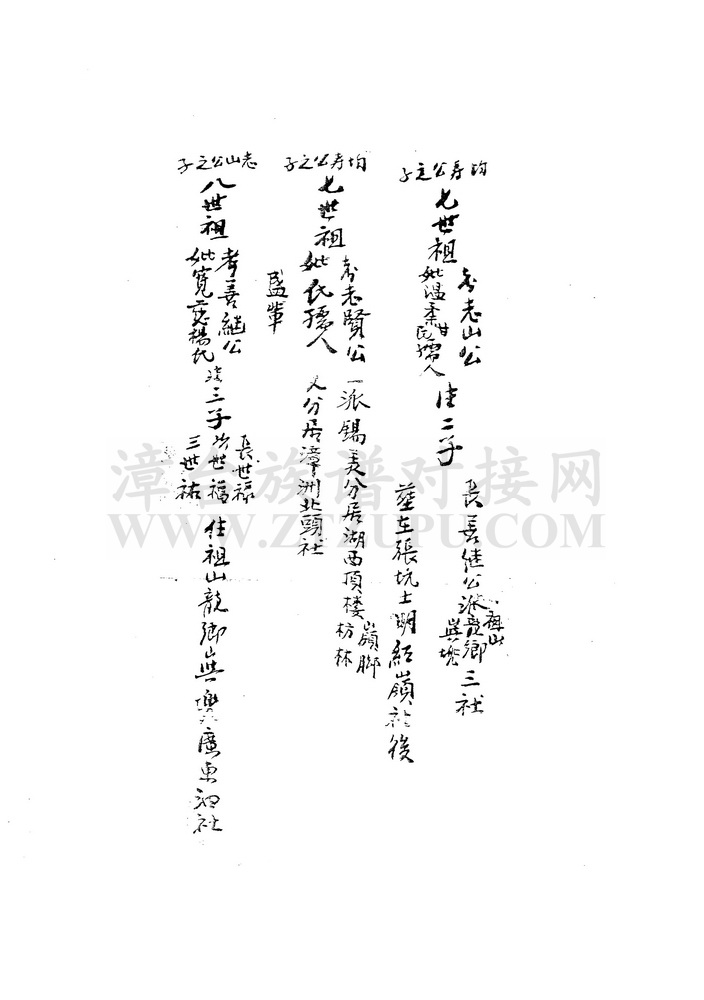 均寿公之子
七世祖
考志山公
妣温柔甘氏孺人
生二子
長善継公派龍鄉三社
祖山
塋在張坑土明紅嶺社後
均寿公之子
七世祖
考志賢公
妣氏孺人
一派錫美分居湖西頂楼
嶺脚
枋林
又分居漳洲北頭社
盛輋
志山公之子
八世祖
考善継公
妣寛慈楊氏
生三子
長世禄
次世福
三世祐
住祖山龍鄉與
社
漳台族谱对接网
WWW.ZTZUPU.COM